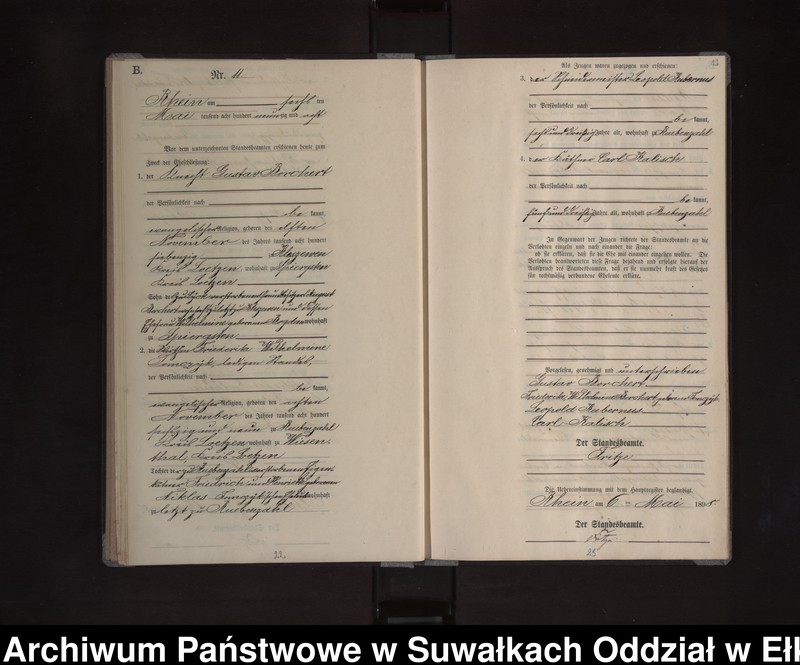 B.
Nr. 11
Rhein am sechs ten
Mai tausend acht hundert neunzig und acht
Vor dem unterzeichneten Standesbeamten erschienen heute zum
Zweck der Eheschließung:
1. der Knecht Gustav Borchert
der Persönlichkeit nach
be kannt,
evangelischer Religion, geboren den elften
November des Jahres tausend acht hundert
siebenzig
Kreis Loetzen, wohnhaft zu Spiergsten
Kreis Loetzen
Sohn des
Borchert und dessen
Ehefrau Wilhelmine geborenen wohnhaft
zu Spiergsten
2. die Friederike Wilhelmine
Tomczyk, ledigen Standes,
der Persönlichkeit nach
be kannt,
evangelischer Religion, geboren den achten
November des Jahres tausend acht hundert
sechzig und neun zu Ruebenzahl
Kreis Loetzen wohnhaft zu Wiesen
thal, Kreis Loetzen
Tochter der zu Ruebenzahl verstorbenen Eigen
käthner Friedrich und Henriette geborenen
Niklas Tomczyk'schen Eheleute wohnhaft
zuletzt zu Ruebenzahl
22.
Als Zeugen waren zugezogen und erschienen:
3. der Schneidermeister Leopold Kubernus
der Persönlichkeit nach
be kannt,
sechs und dreißig Jahre alt, wohnhaft zu Ruebenzahl
4. der Käthner Carl Kalisch
der Persönlichkeit nach
be kannt,
fünf und dreißig Jahre alt, wohnhaft zu Ruebenzahl
In Gegenwart der Zeugen richtete der Standesbeamte an die
Verlobten einzeln und nach einander die Frage:
ob sie erklären, daß sie die Ehe mit einander eingehen wollen. Die
Verlobten beantworteten diese Frage bejahend und erfolgte hierauf der
Ausspruch des Standesbeamten, daß er sie nunmehr kraft des Gesetzes
für rechtmäßig verbundene Eheleute erkläre.
Vorgelesen, genehmigt und unterschrieben
Gustav Borchert
Friederike Wilhelmine Borchert geborene Tomczyk
Leopold Kubernus
Carl Kalisch
Der Standesbeamte.
Fritze
Die Uebereinstimmung mit dem Hauptregister beglaubigt.
Rhein am 6 ten Mai 1898.
Der Standesbeamte.
Fritze
23
Archiwum Państwowe w Suwałkach Oddział w Ełk